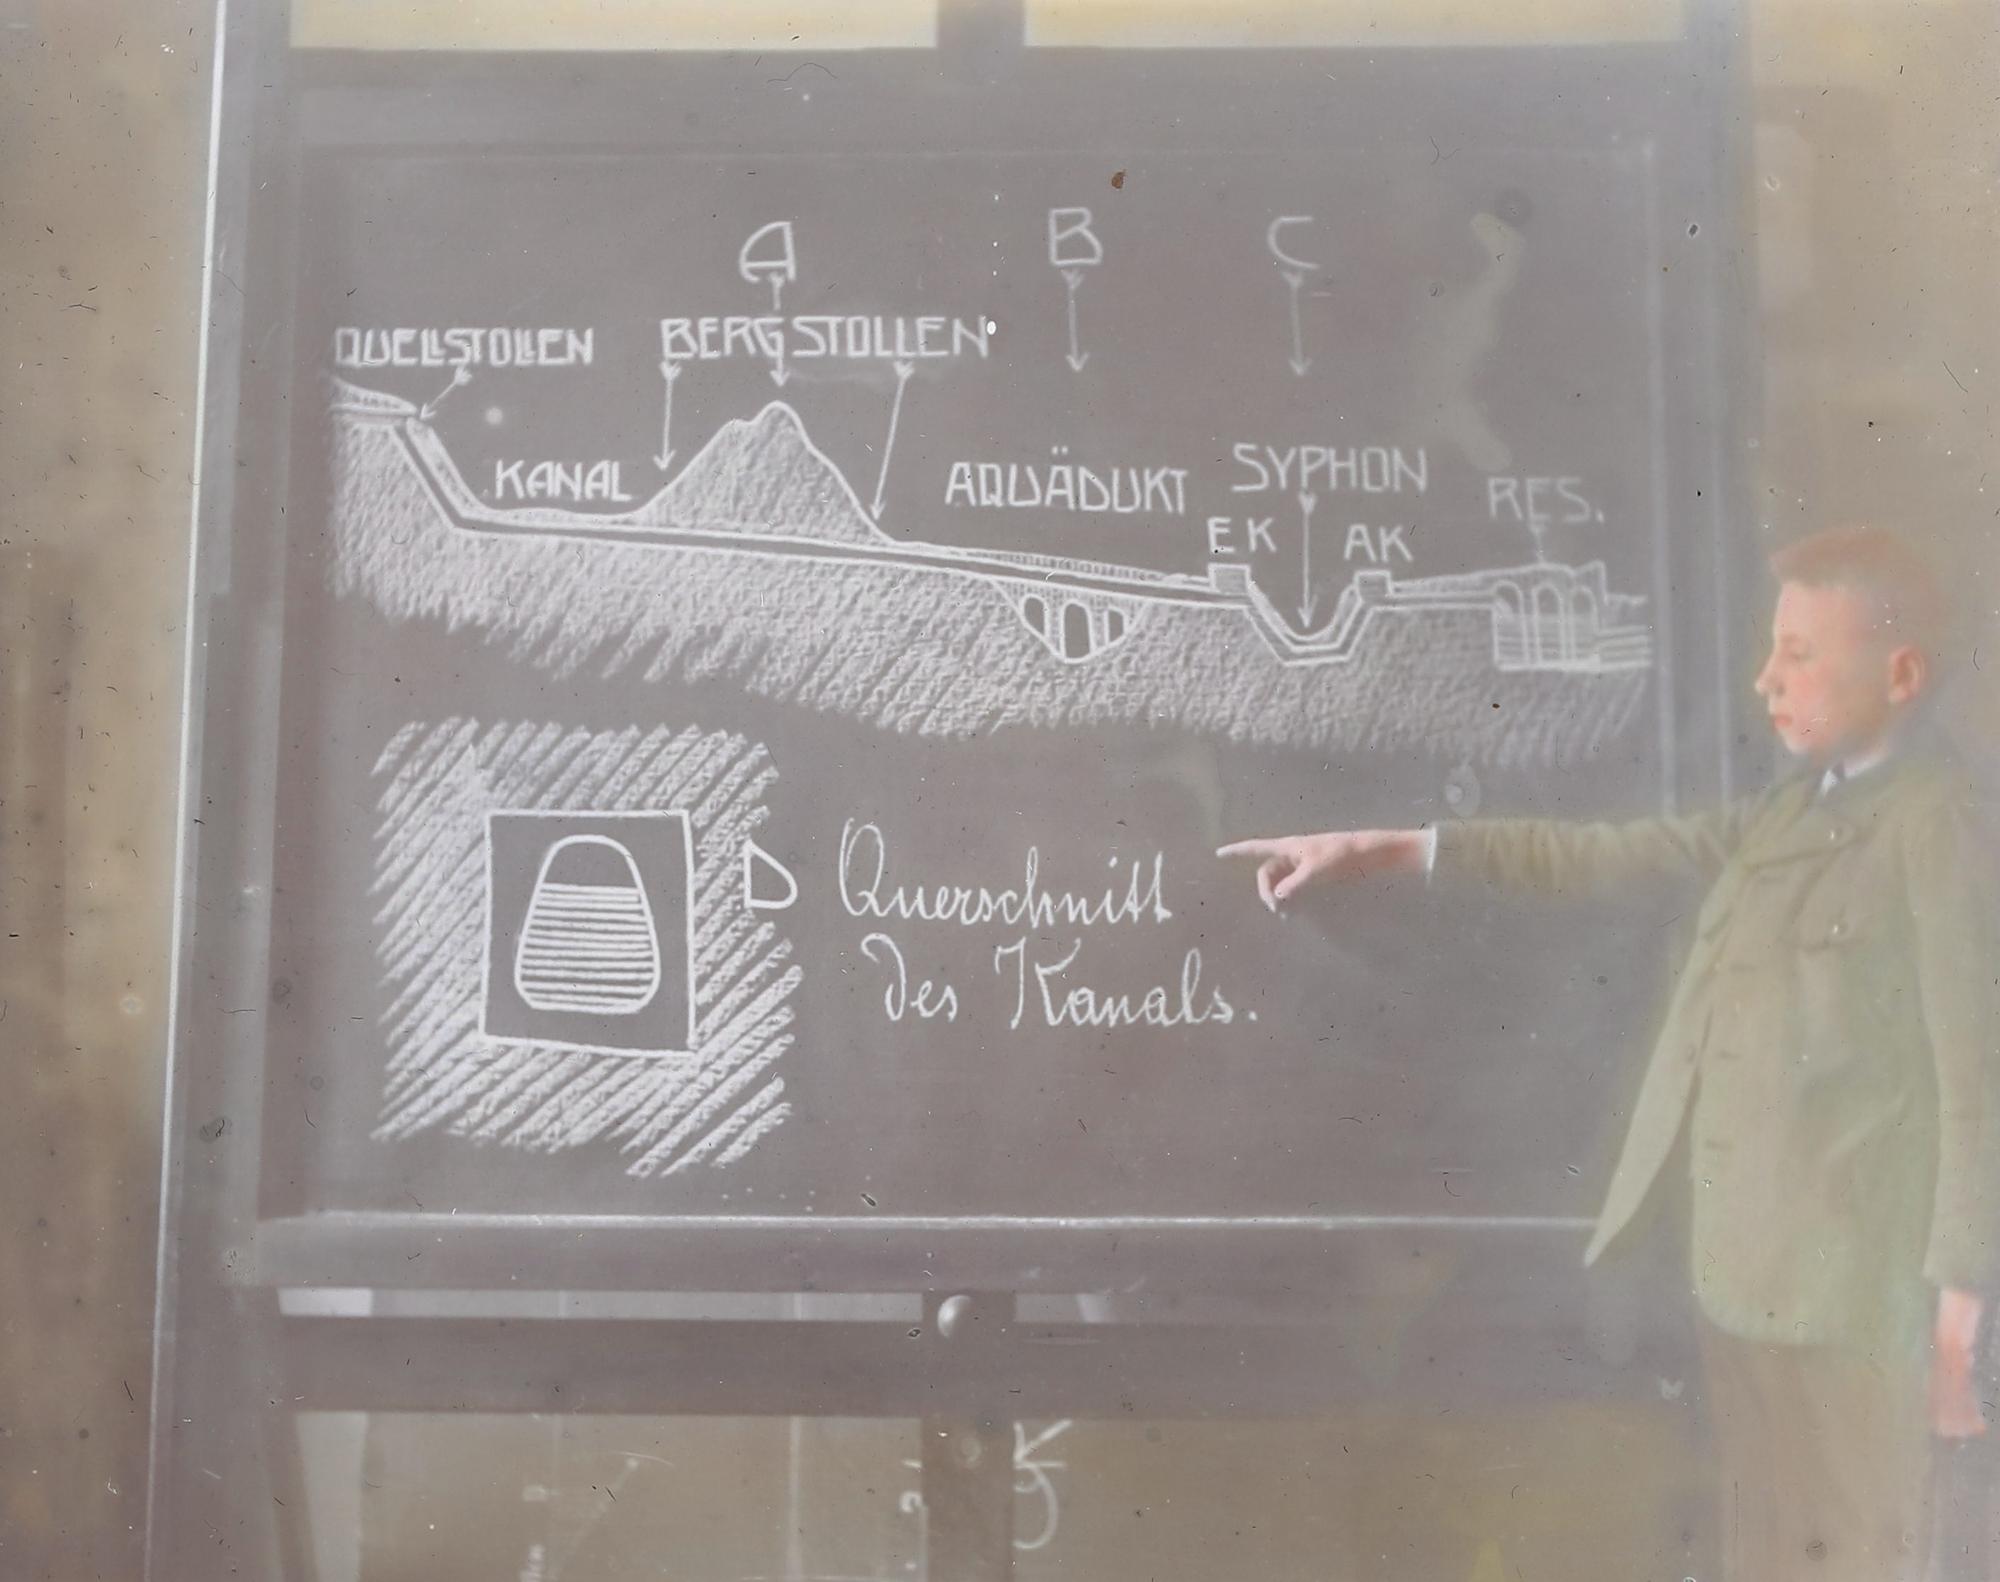 A B C
QUELLSTOLLEN BERGSTOLLEN
KANAL AQUÄDUKT SYPHON RES.
EK AK
D Querschnitt
des Kanals.